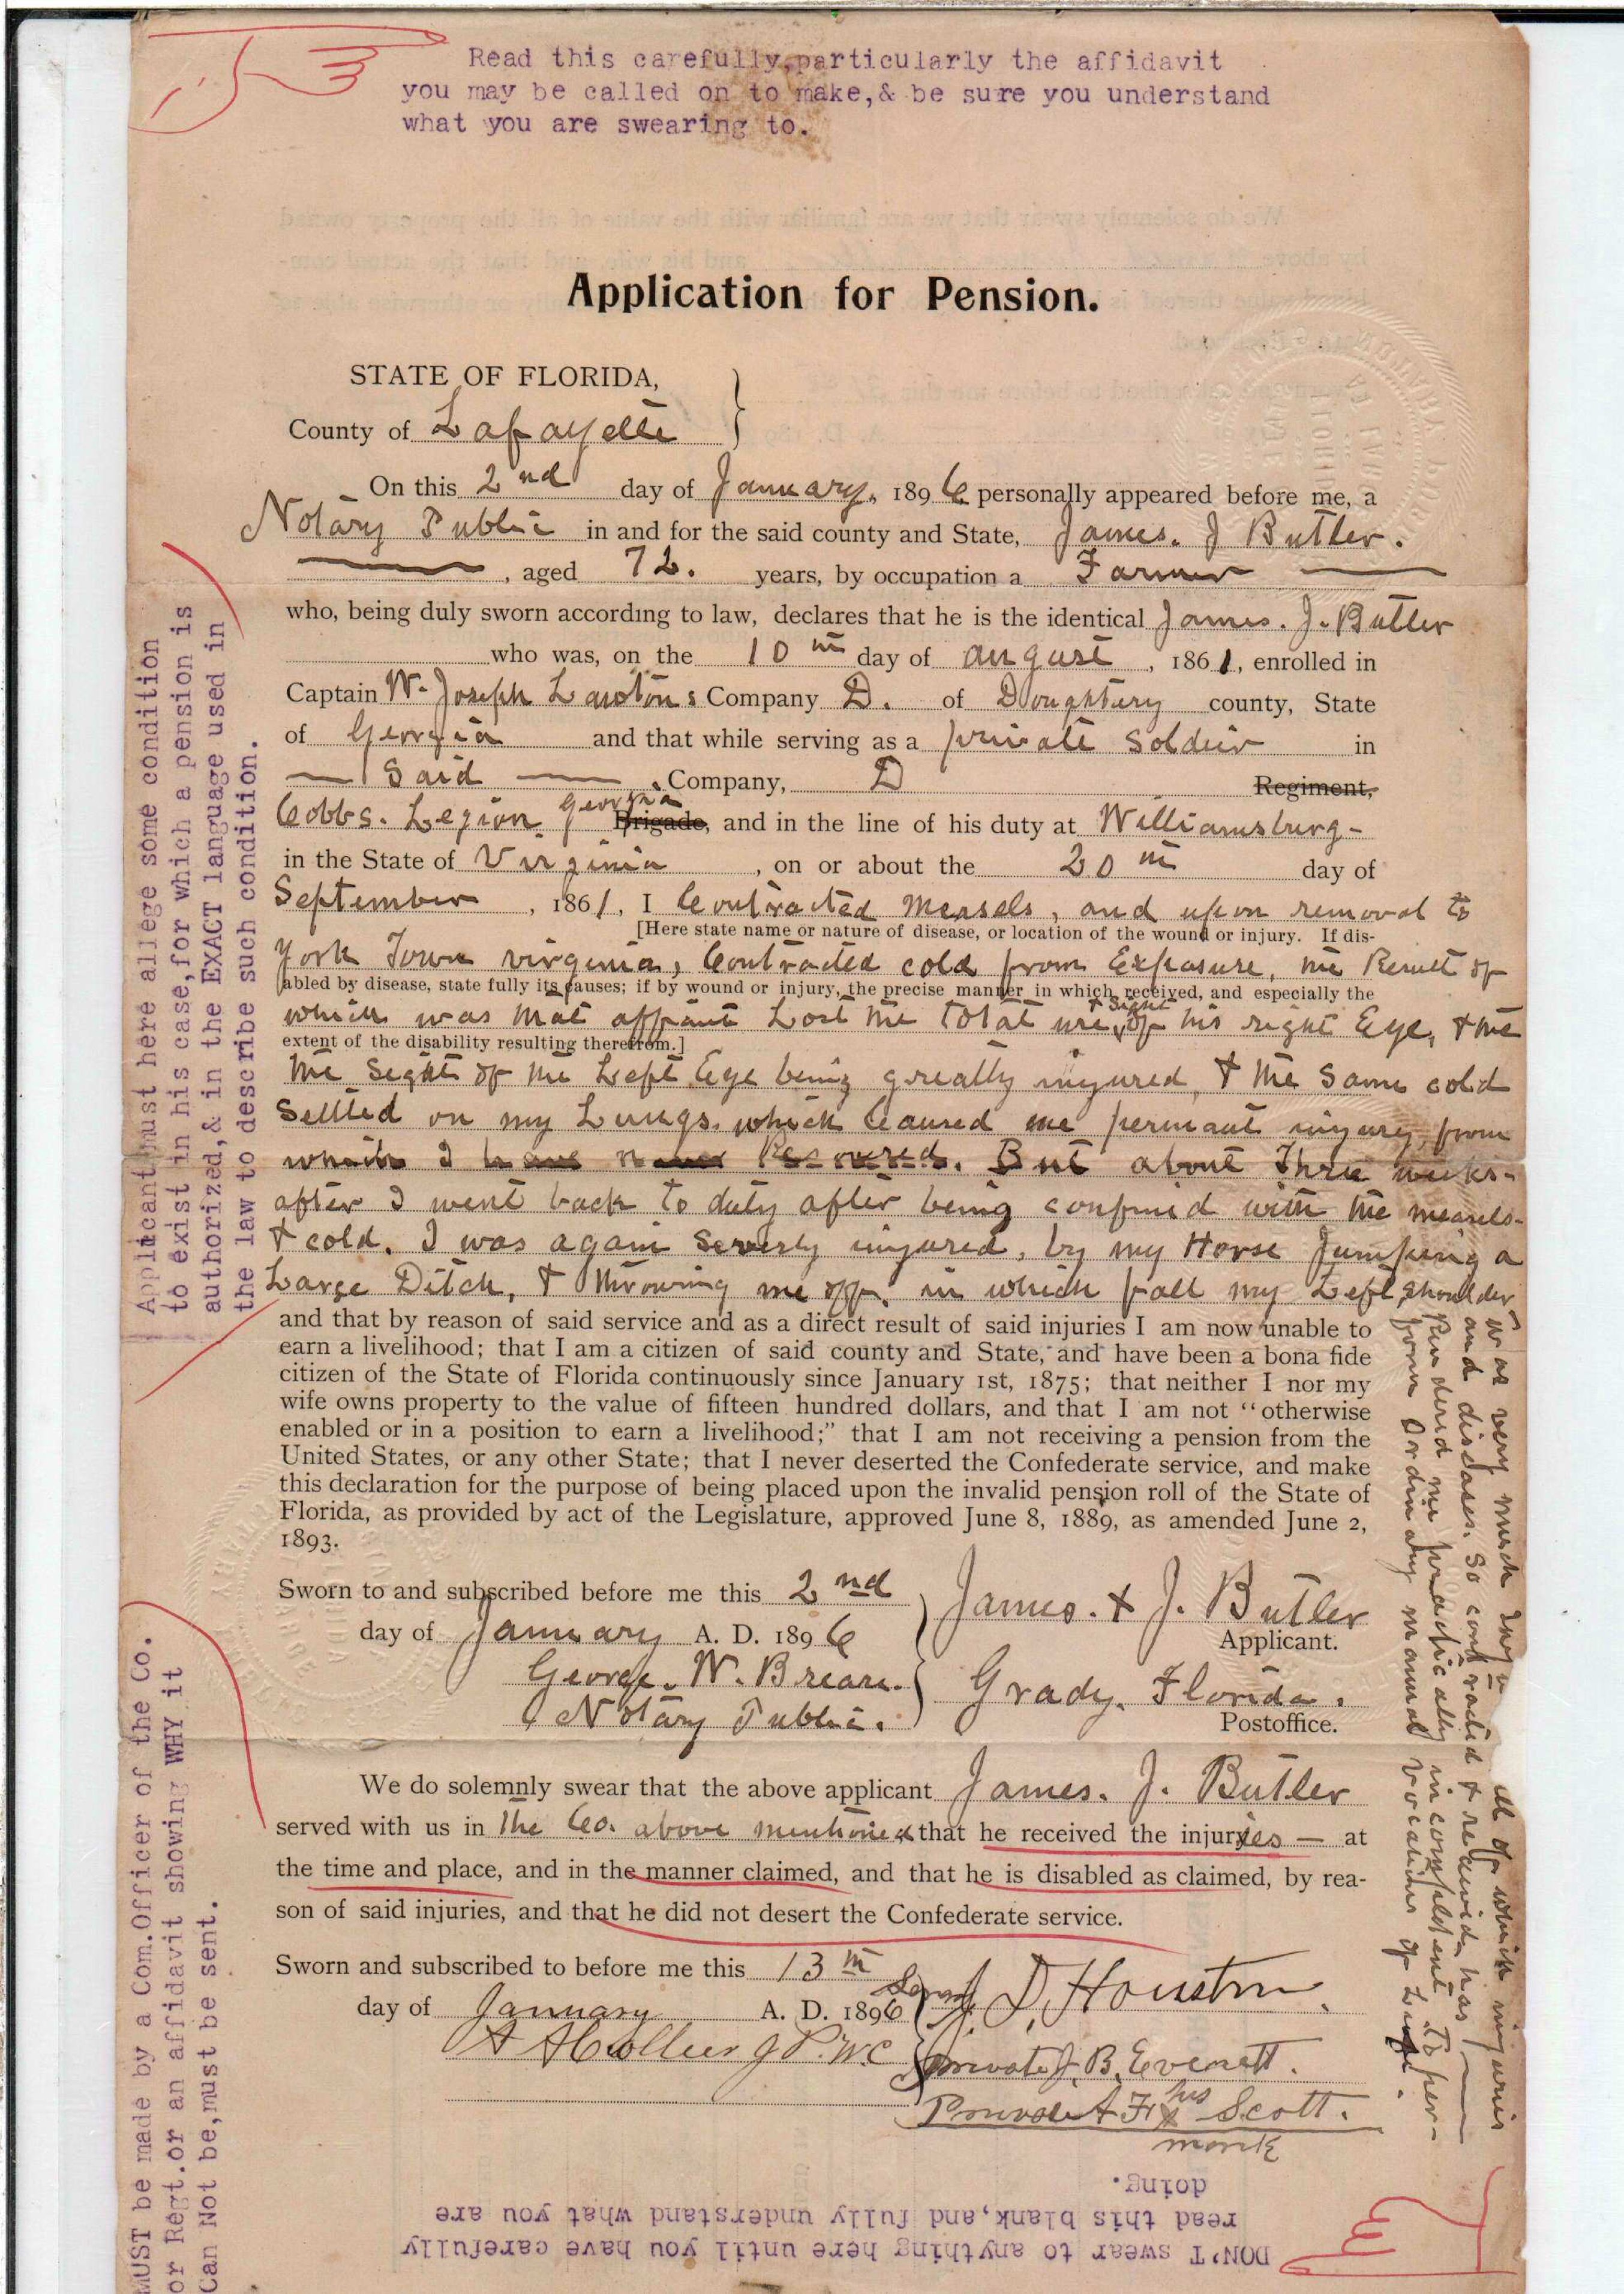 Read this carefully,particularly the affidavit
you may be called on to make,& be sure you understand
what you are swearing to.
Application for Pension.
STATE OF FLORIDA,
County of Lafayette
On this 2nd day of January, 1896 personally appeared before me, a
Notary Public in and for the said county and State, James. J Butler.
, aged 72. years, by occupation a Farmer
who, being duly sworn according to law, declares that he is the identical James. J. Butler
who was, on the 10th day of august, 1861, enrolled in
Captain W. Joseph Lawtons Company D. of Doughtery county, State
of Georgia and that while serving as a private soldier in
Said Company, D Regiment,
Cobbs. Legion Georgia Brigade, and in the line of his duty at Williamsburg-
in the State of Virginia, on or about the 20th day of
September, 1861, I Contracted Measels, and upon removal to
[Here state name or nature of disease, or location of the wound or injury. If dis-
York Town virginia, Contracted cold from Exposure, the Result of
abled by disease, state fully its causes; if by wound or injury, the precise manner in which received, and especially the
which was that affiant Lost the total use & Sight of his right Eye, & the
extent of the disability resulting therefrom.]
the Sight of the Left Eye being greatly injured, & the same cold
Settled on my Lungs. which Caused me permant injury from
which I have never Recovered. But about Three weeks-
after I went back to duty after being confined with the measels-
& cold. I was again Severly injured, by my Horse Jumping a
Large Ditch, & throwing me off, in which fall my Left shoulder
was very much all of which injuries
and diseases. So contracted & received, has
Rendered me practically incompetent To per-
form Ordinary manual vocations of Life.
and that by reason of said service and as a direct result of said injuries I am now unable to
earn a livelihood; that I am a citizen of said county and State, and have been a bona fide
citizen of the State of Florida continuously since January 1st, 1875; that neither I nor my
wife owns property to the value of fifteen hundred dollars, and that I am not "otherwise
enabled or in a position to earn a livelihood;" that I am not receiving a pension from the
United States, or any other State; that I never deserted the Confederate service, and make
this declaration for the purpose of being placed upon the invalid pension roll of the State of
Florida, as provided by act of the Legislature, approved June 8, 1889, as amended June 2,
1893.
Sworn to and subscribed before me this 2nd
day of January A. D. 1896
James. + J. Butler
Applicant.
George. W.
Notary Public.
Grady, Florida.
Postoffice.
We do solemnly swear that the above applicant James. J. Butler
served with us in The Co. above mentioned & that he received the injuries — at
the time and place, and in the manner claimed, and that he is disabled as claimed, by rea-
son of said injuries, and that he did not desert the Confederate service.
Sworn and subscribed to before me this 13th
day of January A. D. 1896
J. D. Houston.
private J. B. Everett.
Private A F his x Scott.
mark
DON'T swear to anything here until you have carefully
read this blank,and fully understand what you are
doing.
Applicant must here allege some condition
to exist in his case,for which a pension is
authorized,& in the EXACT language used in
the law to describe such condition.
MUST be made by a Com.Officer of the Co.
or Regt.or an affidavit showing WHY it
Can Not be,must be sent.